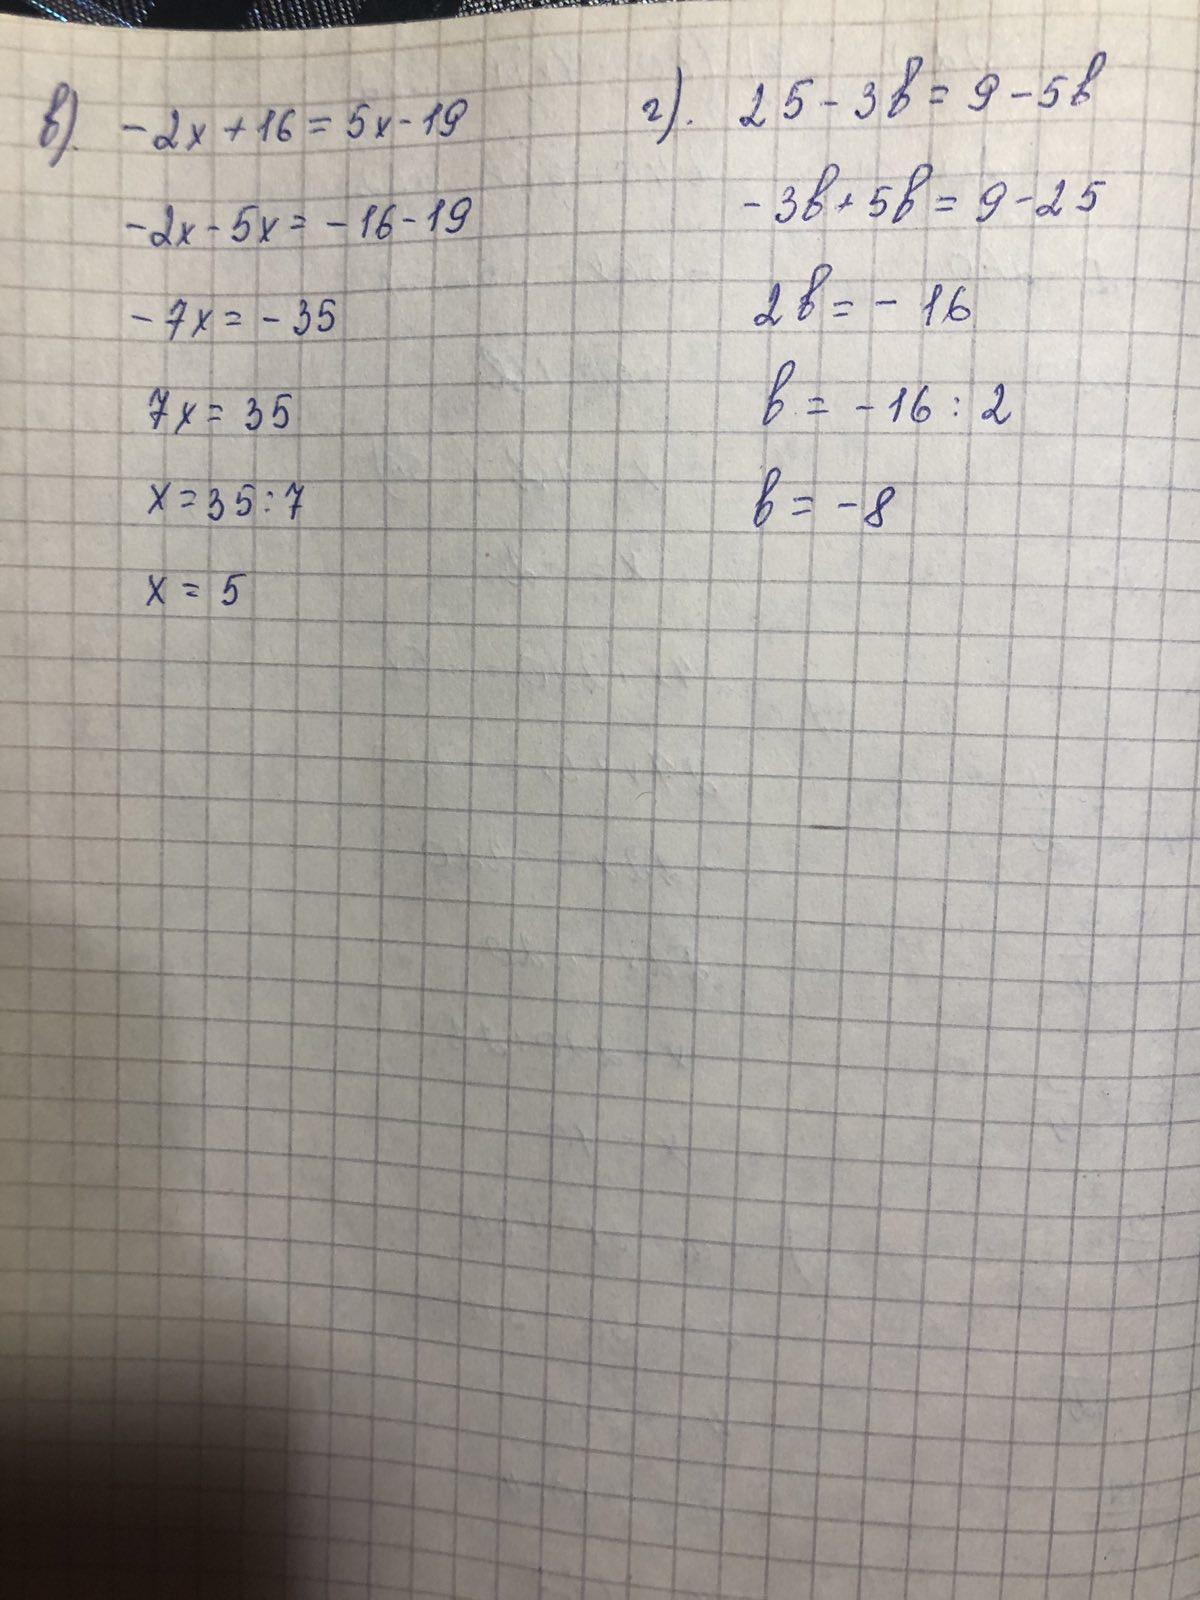 в). -2x + 16 = 5x - 19
-2x - 5x = -16 - 19
-7x = -35
7x = 35
x = 35 : 7
x = 5
г). 25 - 3b = 9 - 5b
-3b + 5b = 9 - 25
2b = - 16
b = -16 : 2
b = -8